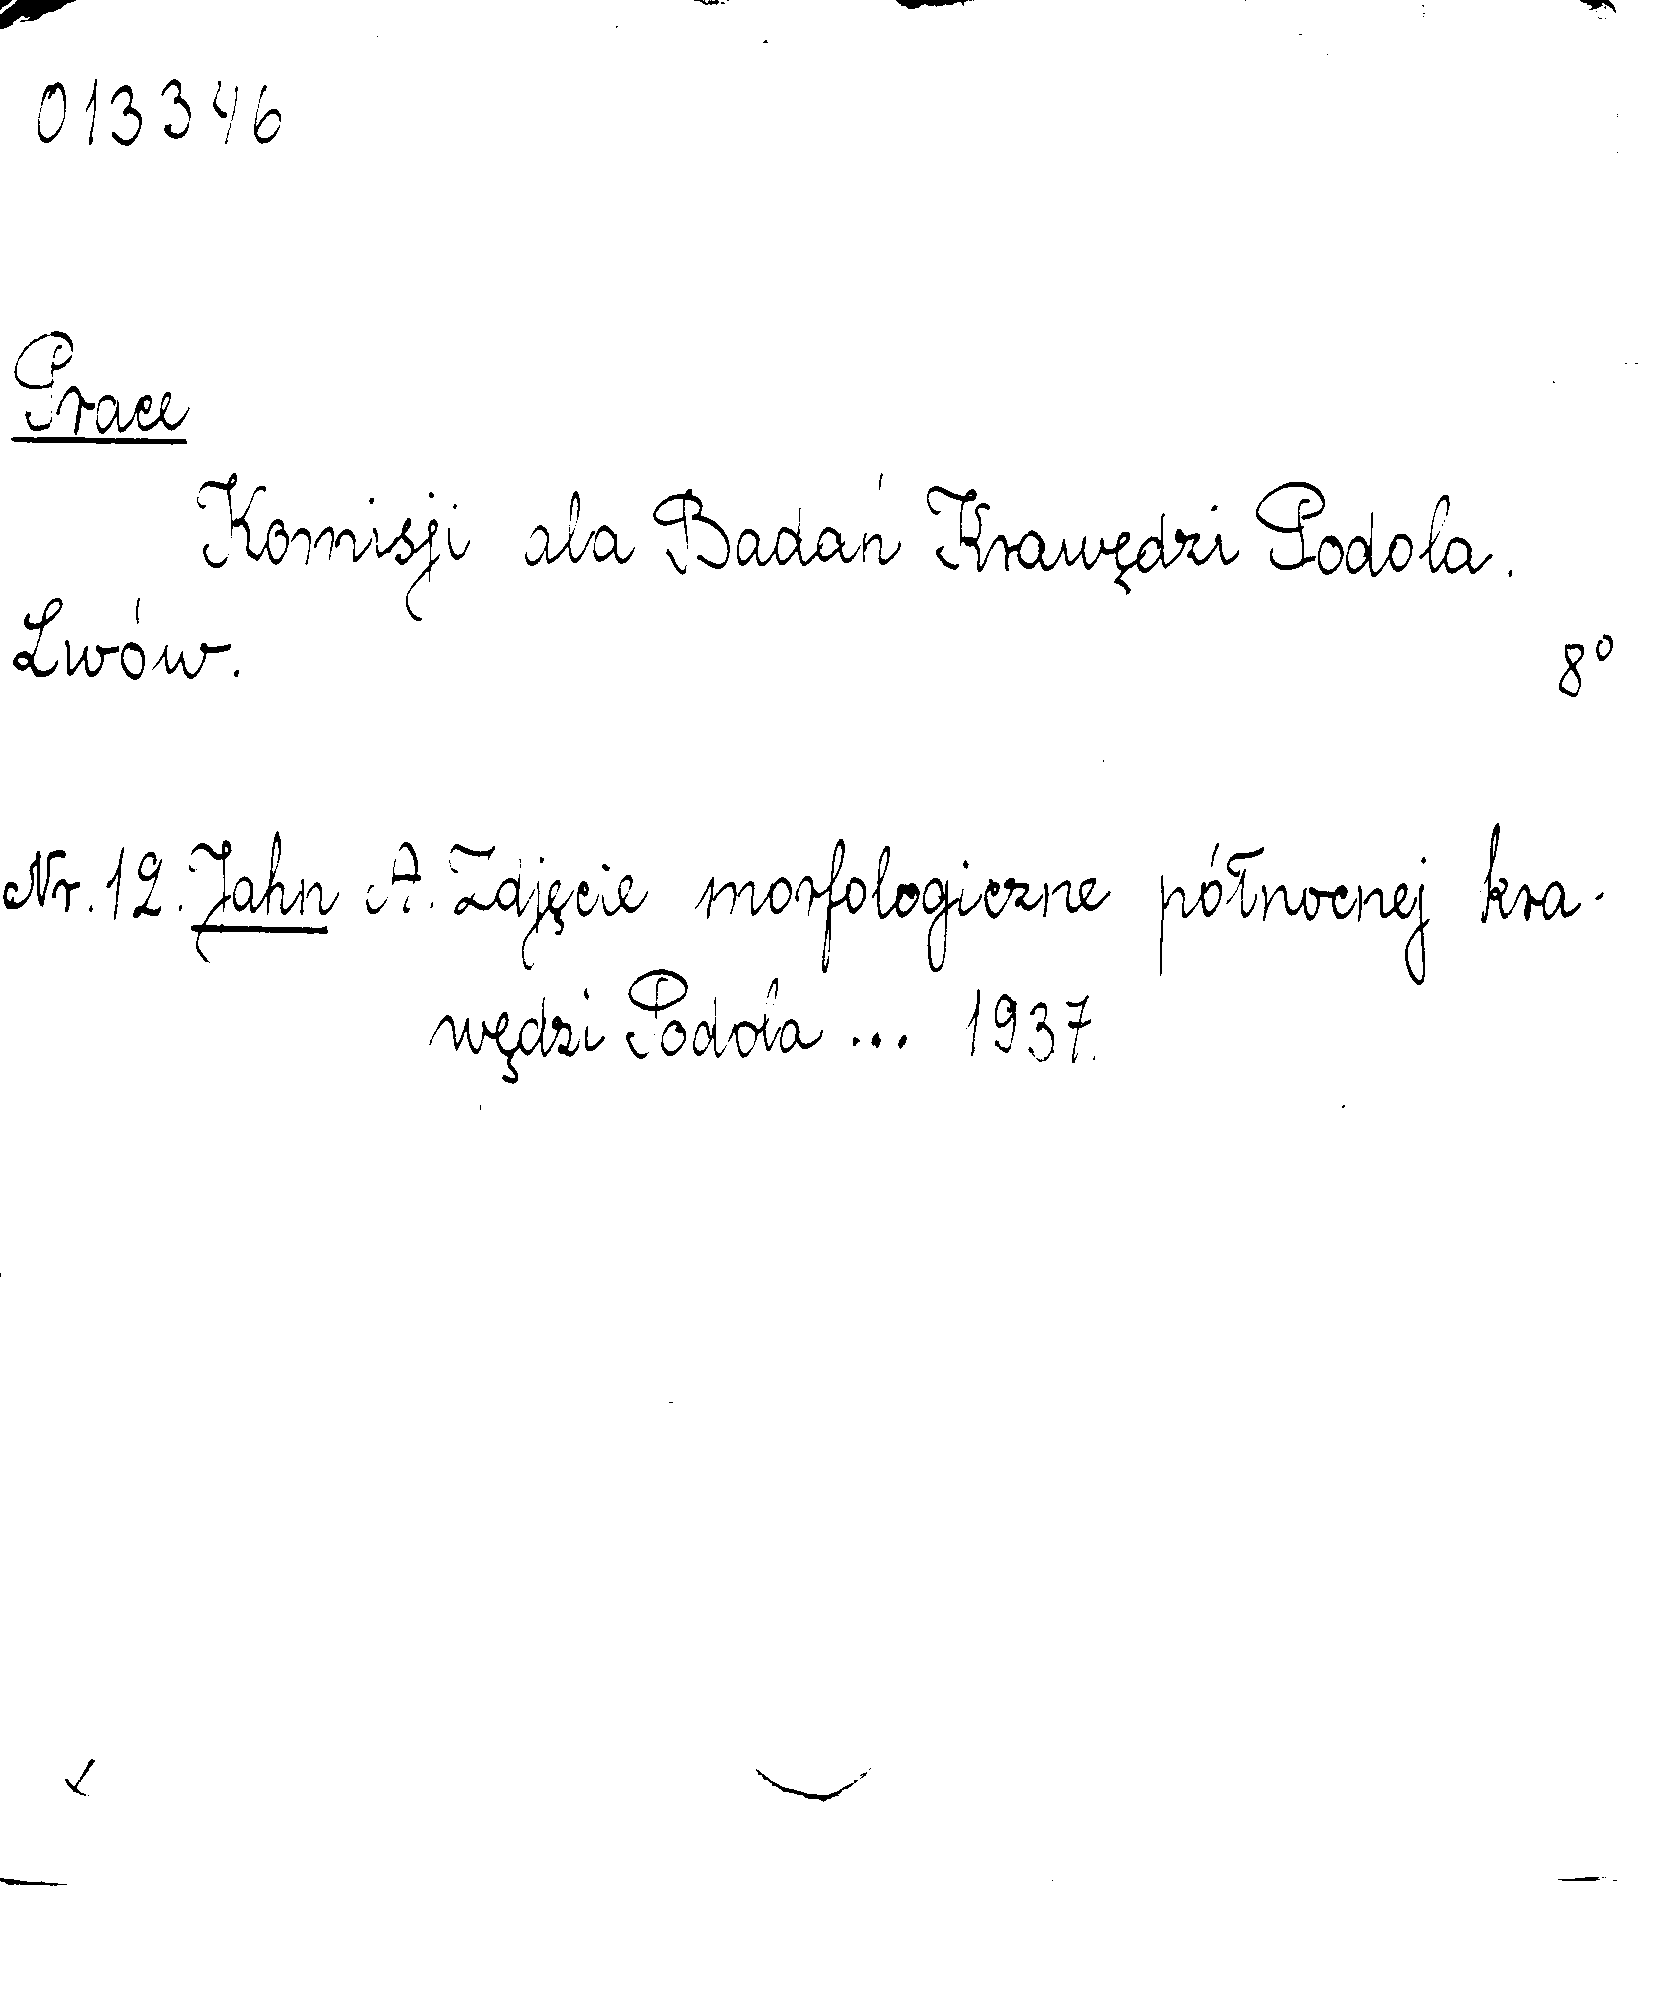 013346
Prace
Komisji dla Badań Krawędzi Podola.
Lwów. 8°
Nr. 12. Jahn A. Zdjęcie morfologiczne północnej kra-
wędzi Podola ... 1937.